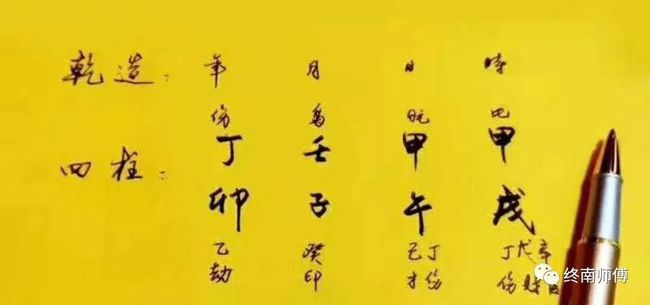 乾造： 年 月 日 時
伤 枭 比
四柱： 丁 壬 甲 甲
卯 子 午 戌
乙 癸 己丁 丁戊辛
劫 印 才伤 伤财
终南师傅